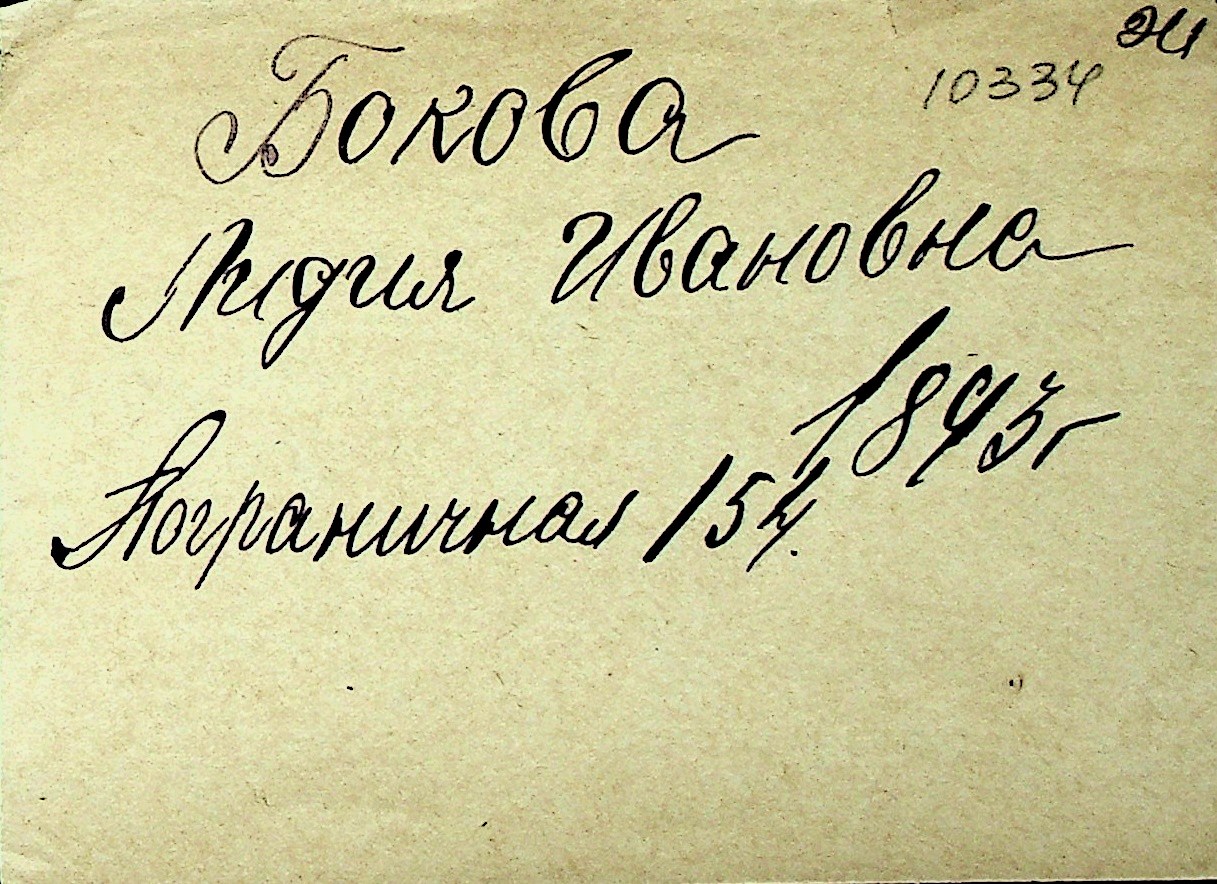 10334
Бокова
Лидия Ивановна
1893г
Пограничная 154.